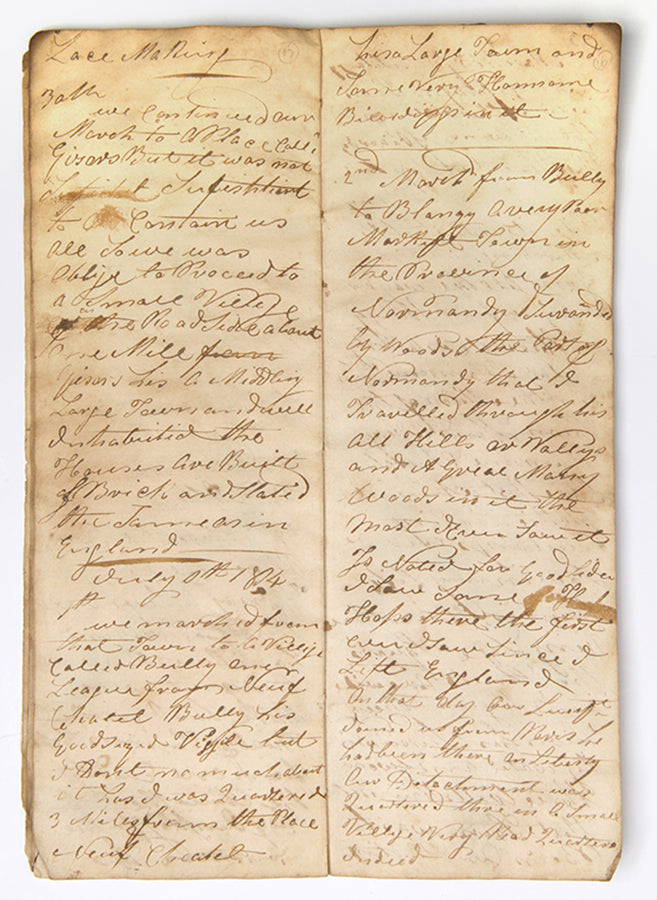 Lace Making
30th
we Continued our
March to A Place Call'd
Gisors But it was not
Sufishtiant
to Contain us
All So we was
Oblige to Proceed to
a Small Village
on the Road Side about
one Mile from
Gisors his A Middling
Large Town and well
Inhabitied the
Houses Are Built
of Brick and Slated
the Same as in
England
July 1814
we marched from
that Town to A Village
Called Bully one
League from Neuf
Chatel Bully his
Good sized Village but
I Dont no much about
it has I was Quartered
3 Miles from the Place
Neuf Chatel
his a Large Town and
Some Very Hansome
in it
2nd March from Bully
to Blangy A very Poor
Markett Town in
the Province of
Normandy Surounded
by Woods the Part of
Normandy that I
Travelled through his
All Hills or Valleys
and A Great Many
Woods in it the
Most I ever Saw it
Is Noted for Good Sider
I Saw Some
Hops there the first
ever I saw Since I
Left England
On that day Our Lieut
Joined us from Paris he
had been there on Liberty
Our Detachment was
Quartered there in a Small
Village Very Bad Quarters
Indeed